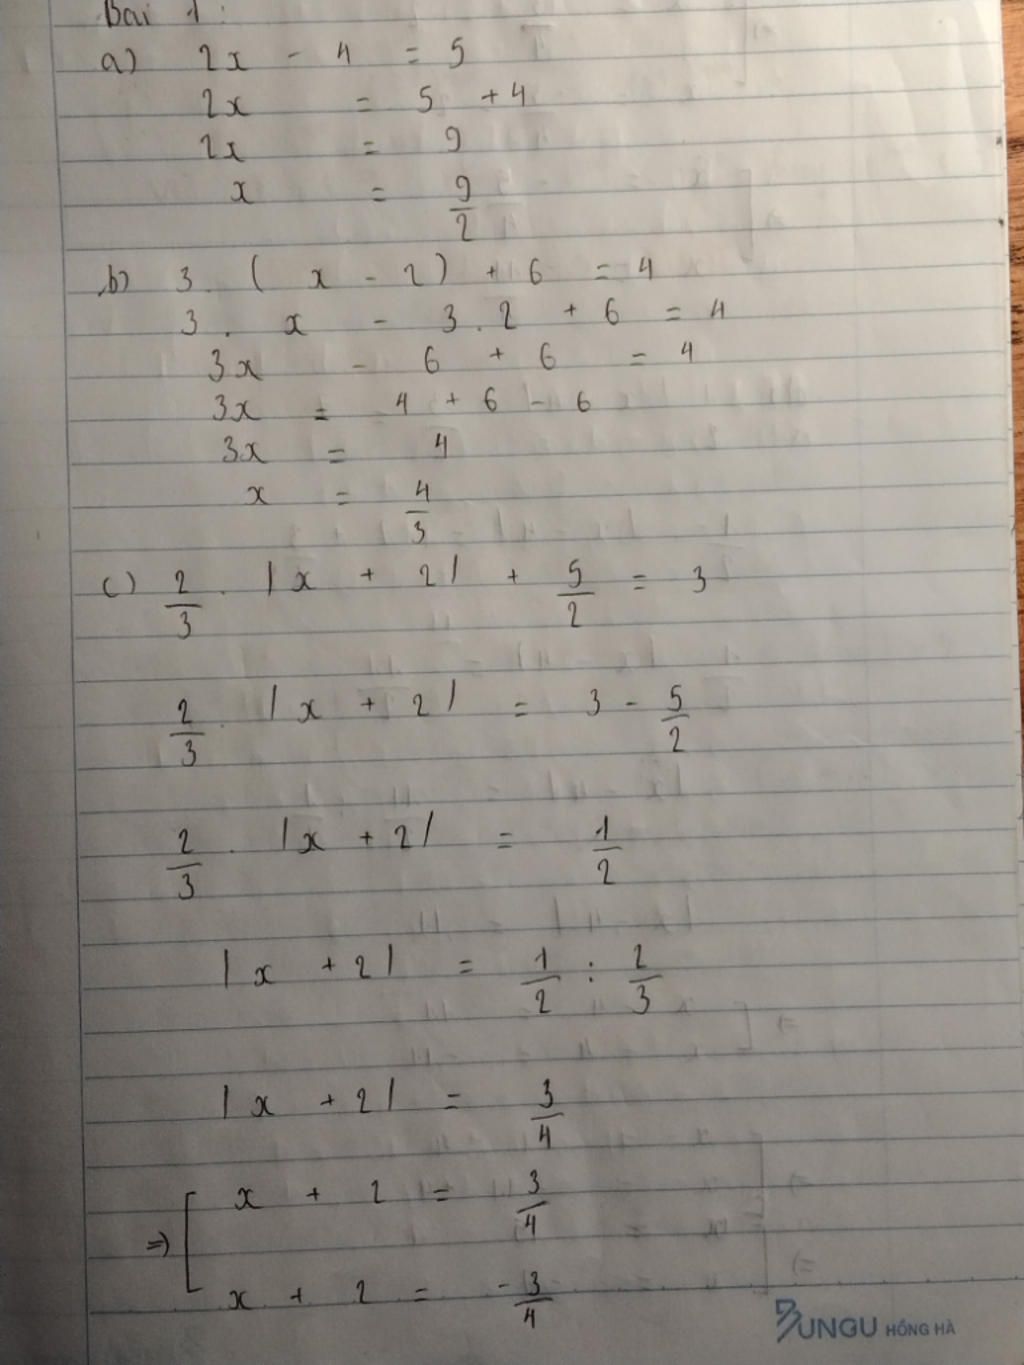 Bài 1:
a) 2x - 4 = 5
2x = 5 + 4
2x = 9
x = 9/2
b) 3. (x - 2) + 6 = 4
3. x - 3.2 + 6 = 4
3x - 6 + 6 = 4
3x = 4 + 6 - 6
3x = 4
x = 4/3
c) 2/3 . |x + 2| + 5/2 = 3
2/3 . |x + 2| = 3 - 5/2
2/3 . |x + 2| = 1/2
|x + 2| = 1/2 : 2/3
|x + 2| = 3/4
=> [ x + 2 = 3/4
x + 2 = -3/4
BUNGU HỒNG HÀ